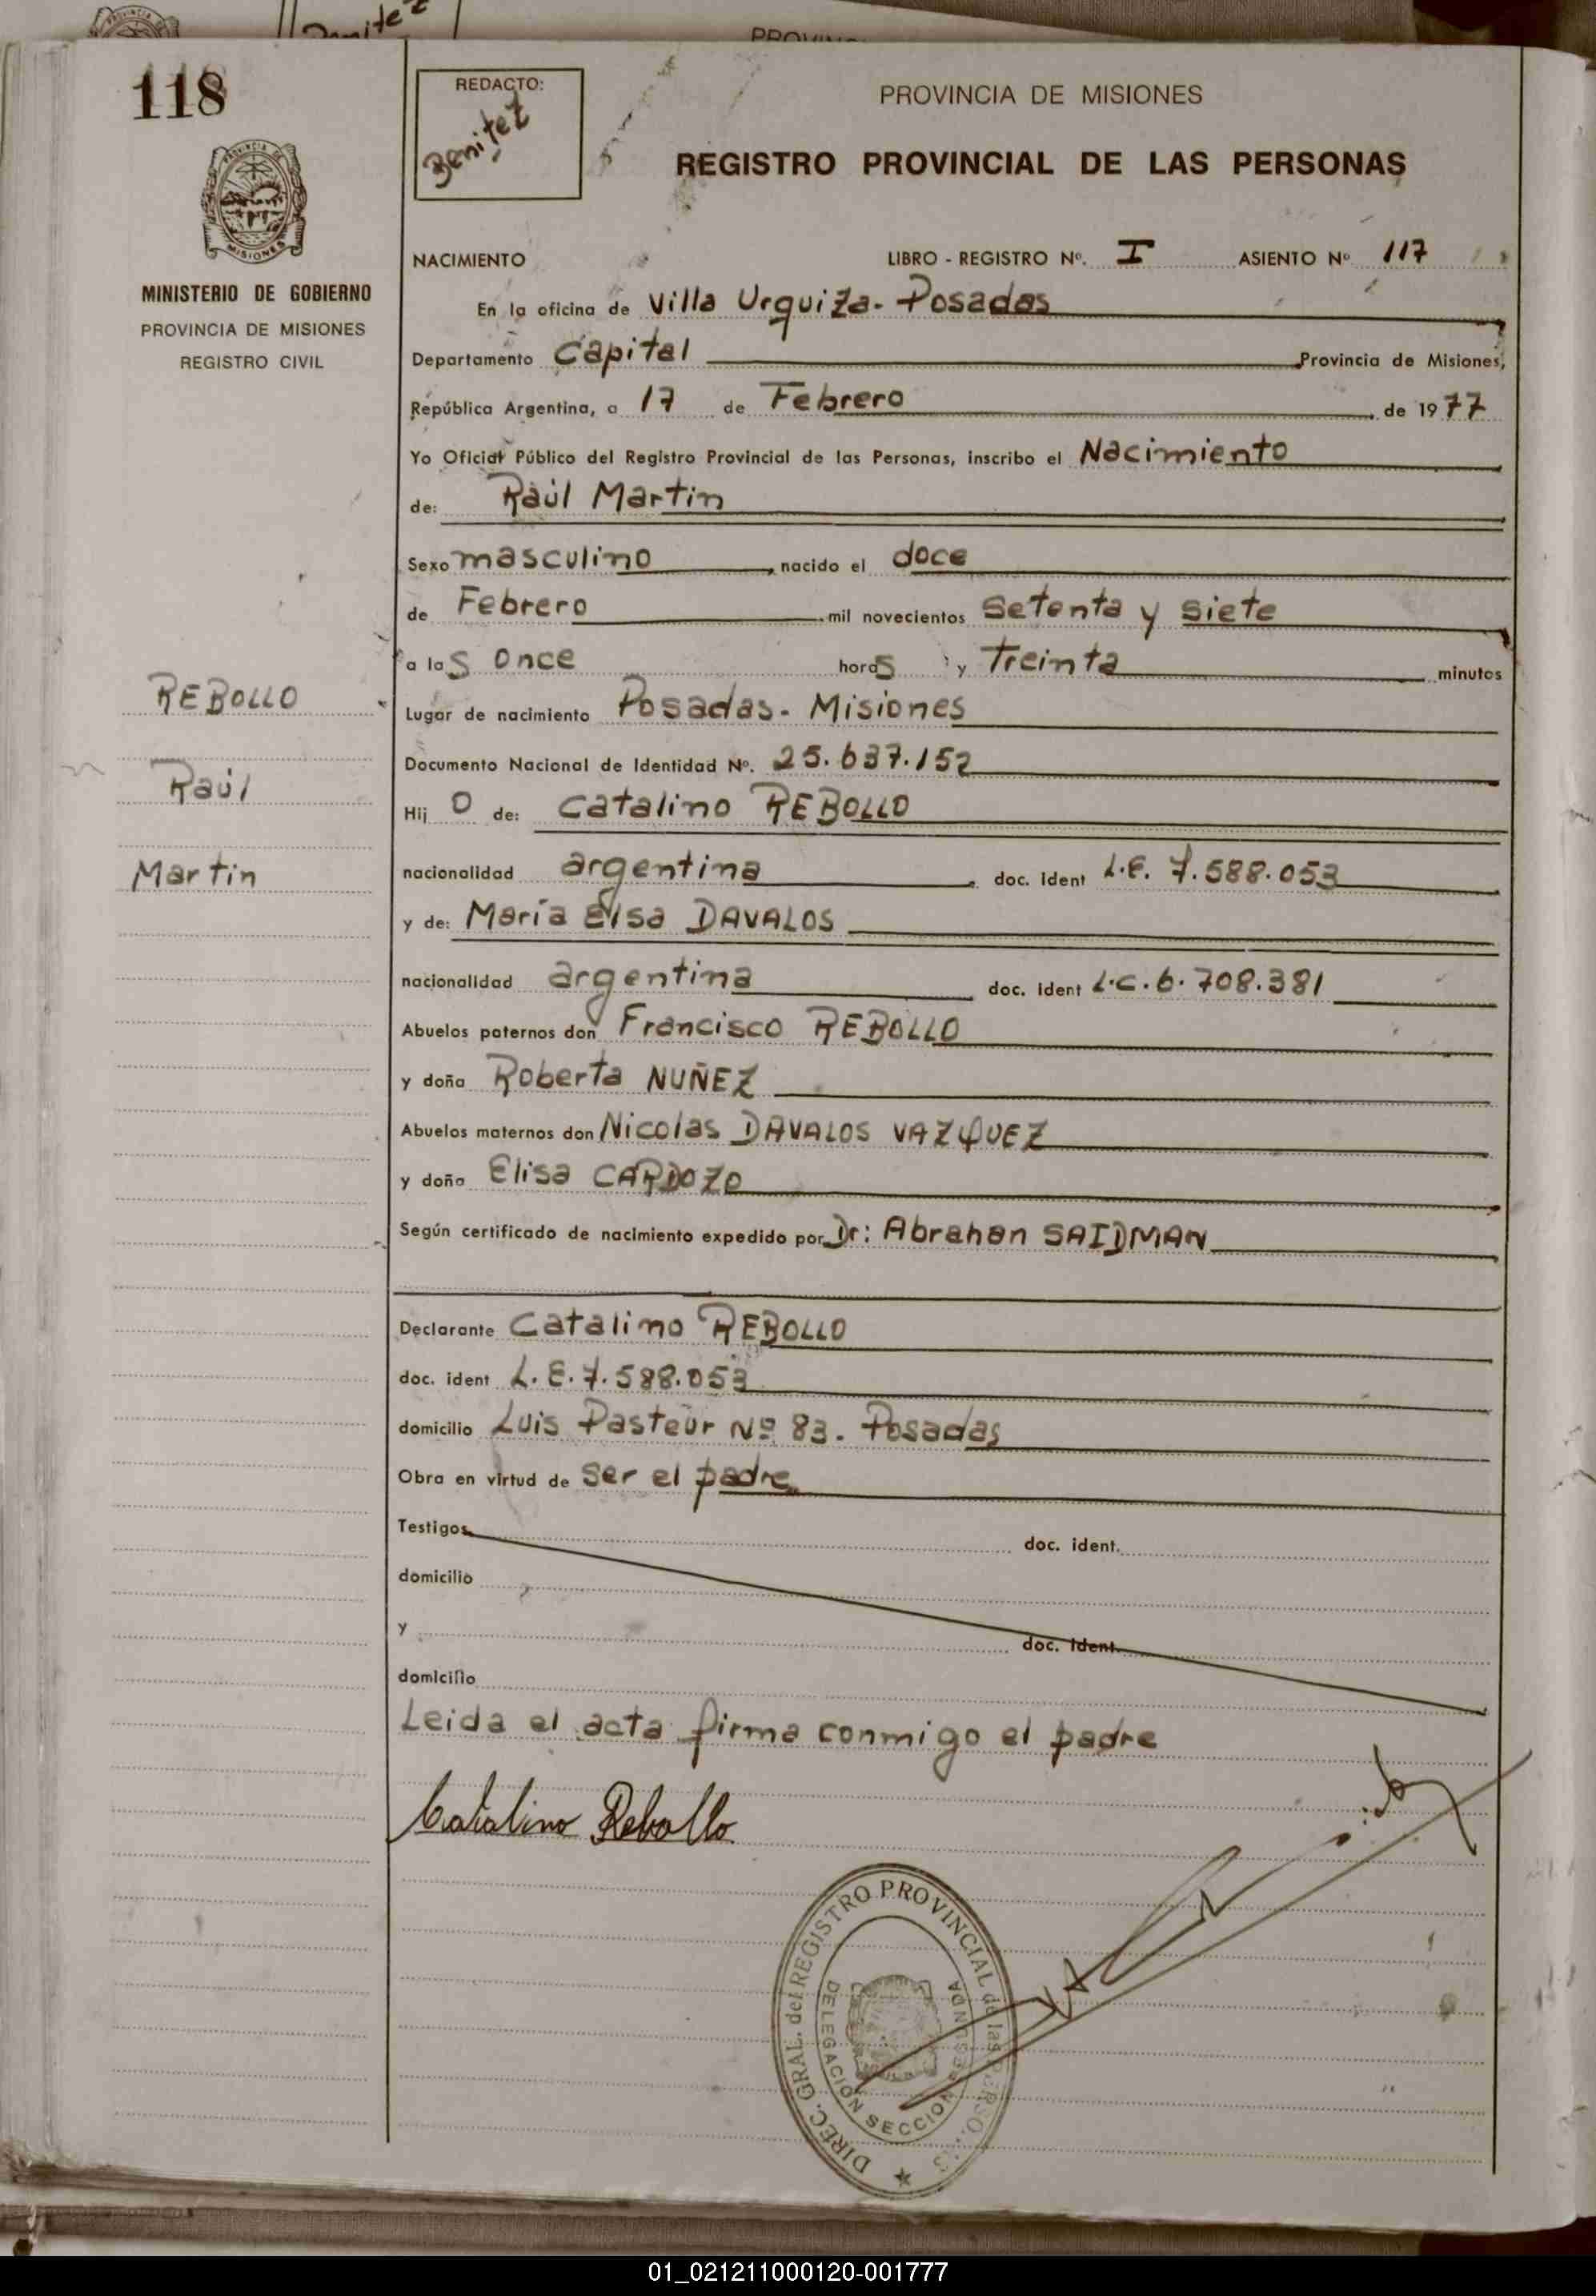 Benitez
118
REDACTO:
Benitez
PROVINCIA DE MISIONES
REGISTRO PROVINCIAL DE LAS PERSONAS
MISIONES
MINISTERIO DE GOBIERNO
PROVINCIA DE MISIONES
REGISTRO CIVIL
NACIMIENTO LIBRO - REGISTRO Nº. I ASIENTO Nº 117
En la oficina de Villa Urquiza - Posadas
Departamento Capital Provincia de Misiones,
República Argentina, a 17 de Febrero de 1977
Yo Oficial Público del Registro Provincial de las Personas, inscribo el Nacimiento
de: Raúl Martin
Sexo masculino, nacido el doce
de Febrero mil novecientos Setenta y siete
a las once horas y Treinta minutos
REBOLLO
Lugar de nacimiento Posadas - Misiones
Documento Nacional de Identidad Nº. 25.637.152
Raúl
Hijo de: Catalino REBOLLO
Martin
nacionalidad argentina doc. ident L.E. 7.588.053
y de: María Elsa DAVALOS
nacionalidad argentina doc. ident L.C. 6.708.381
Abuelos paternos don Francisco REBOLLO
y doña Roberta NUÑEZ
Abuelos maternos don Nicolas DAVALOS VAZQUEZ
y doña Elisa CARDOZO
Según certificado de nacimiento expedido por Dr: Abrahan SAIDMAN
Declarante Catalino REBOLLO
doc. ident L.E. 7.588.053
domicilio Luis Pasteur Nº 83. Posadas
Obra en virtud de ser el padre
Testigos doc. ident.
domicilio
y doc. ident.
domicilio
Leida el acta firma conmigo el padre
Catalino Rebollo
DIREC. GRAL. del REGISTRO PROVINCIAL de las
DELEGACION SECCION SEGUNDA
01_021211000120-001777